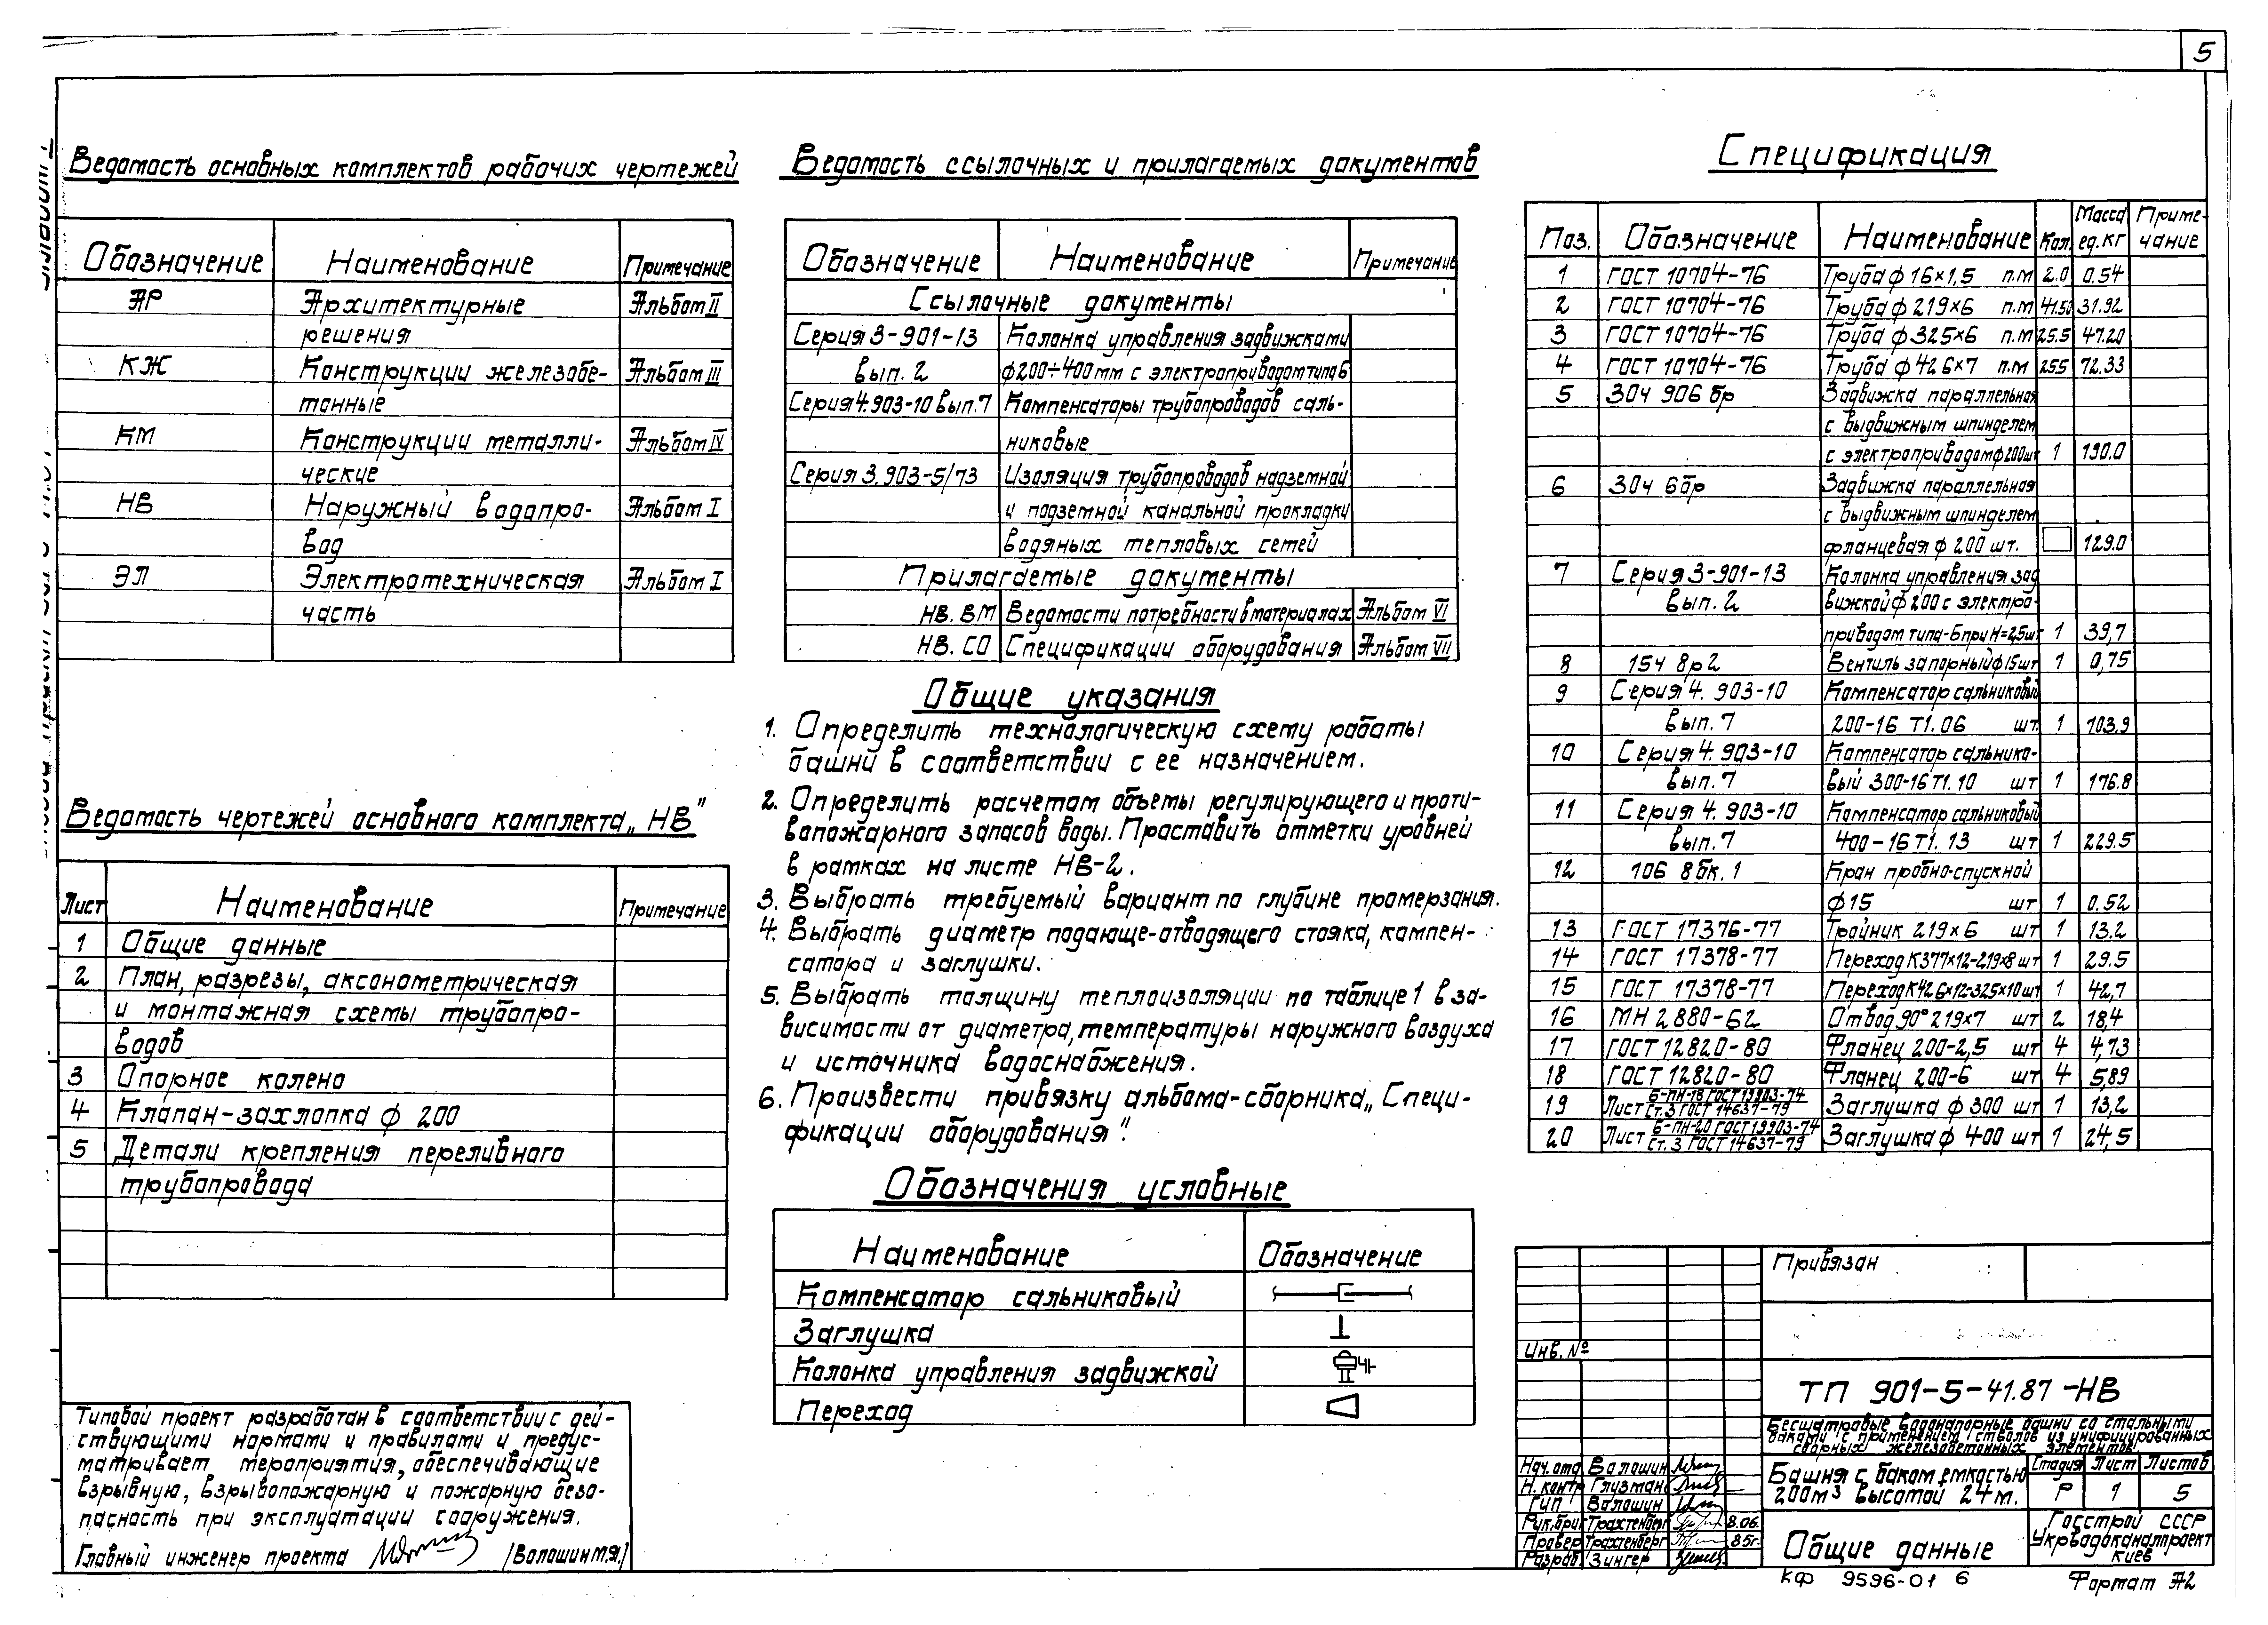 5
Ведомость основных комплектов рабочих чертежей
Обозначение Наименование Примечание
АР Архитектурные Альбом II
решения
КЖ Конструкции железобе- Альбом III
тонные
КМ Конструкции металли- Альбом IV
ческие
НВ Наружный водопро- Альбом I
вод
ЭЛ Электротехническая Альбом I
часть
Ведомость чертежей основного комплекта „НВ"
Лист Наименование Примечание
1 Общие данные
2 План, разрезы, аксонометрическая
и монтажная схемы трубопро-
водов
3 Опорное колено
4 Клапан-захлопка ф 200
5 Детали крепления переливного
трубопровода
Типовой проект разработан в соответствии с дей-
ствующими нормами и правилами и предус-
матривает мероприятия, обеспечивающие
взрывную, взрывопожарную и пожарную безо-
пасность при эксплуатации сооружения.
Главный инженер проекта /Волошин М.Я./
Ведомость ссылочных и прилагаемых документов
Обозначение Наименование Примечание
Ссылочные документы
Серия 3-901-13 Колонка управления задвижками
вып. 2 ф200÷400мм с электроприводом типа Б
Серия 4.903-10 вып.7 Компенсаторы трубопроводов саль-
никовые
Серия 3.903-5/73 Изоляция трубопроводов надземной
и подземной канальной прокладки
водяных тепловых сетей
Прилагаемые документы
НВ. ВМ Ведомости потребности в материалах Альбом VI
НВ. СО Спецификации оборудования Альбом VII
Общие указания
1. Определить технологическую схему работы
башни в соответствии с ее назначением.
2. Определить расчетом объемы регулирующего и проти-
вопожарного запасов воды. Проставить отметки уровней
в рамках на листе НВ-2.
3. Выбрать требуемый вариант по глубине промерзания.
4. Выбрать диаметр подающе-отводящего стояка, компен-
сатора и заглушки.
5. Выбрать толщину теплоизоляции по таблице 1 в за-
висимости от диаметра, температуры наружного воздуха
и источника водоснабжения.
6. Произвести привязку альбома-сборника „Специ-
фикации оборудования".
Обозначения условные
Наименование Обозначение
Компенсатор сальниковый
Заглушка
Колонка управления задвижкой
Переход
Спецификация
Поз. Обозначение Наименование Кол. Масса ед. кг Приме-чание
1 ГОСТ 10704-76 Труба ф 16×1,5 п.м 2.0 0.54
2 ГОСТ 10704-76 Труба ф 219×6 п.м 41.50 31.92
3 ГОСТ 10704-76 Труба ф 325×6 п.м 25.5 47.20
4 ГОСТ 10704-76 Труба ф 426×7 п.м 25.5 72.33
5 30ч 906 бр Задвижка параллельная
с выдвижным шпинделем
с электроприводом ф200 шт 1 190.0
6 30ч 6 бр Задвижка параллельная
с выдвижным шпинделем
фланцевая ф 200 шт. 129.0
7 Серия 3-901-13 Колонка управления зад
вып. 2 вижкой ф 200 с электро-
приводом типа-Б при Н=2,5 шт 1 39,7
8 15ч 8р2 Вентиль запорный ф15 шт 1 0,75
9 Серия 4. 903-10 Компенсатор сальниковый
вып. 7 200-16 Т1.06 шт. 1 103,9
10 Серия 4. 903-10 Компенсатор сальнико-
вып. 7 вый 300-16 Т1. 10 шт 1 176.8
11 Серия 4. 903-10 Компенсатор сальниковый
вып. 7 400-16 Т1. 13 шт 1 229.5
12 10б 8бк. 1 Кран пробно-спускной
ф 15 шт 1 0.52
13 ГОСТ 17376-77 Тройник 219×6 шт 1 13.2
14 ГОСТ 17378-77 Переход К377×12-219×8 шт 1 29.5
15 ГОСТ 17378-77 Переход К426×12-325×10 шт 1 42,7
16 МН 2880-62 Отвод 90° 219×7 шт 2 18,4
17 ГОСТ 12820-80 Фланец 200-2,5 шт 4 4,73
18 ГОСТ 12820-80 Фланец 200-6 шт 4 5,89
19 Лист Б-ПН-18 ГОСТ 19903-74 / Ст. 3 ГОСТ 14637-79 Заглушка ф 300 шт 1 13,2
20 Лист Б-ПН-20 ГОСТ 19903-74 / Ст. 3 ГОСТ 14637-79 Заглушка ф 400 шт 1 24,5
Привязан
Инв. №
ТП 901-5-41.87 -НВ
Бесшатровые водонапорные башни со стальными
баками с применением стволов из унифицированных
сборных железобетонных элементов.
Нач. отд Волошин
Н. контр Глузман
ГИП Волошин
Рук. бриг Трахтенберг 8.06.
Провер Трахтенберг 85г.
Разраб Зингер
Башня с баком емкостью
200м³ высотой 24 м.
Стадия Лист Листов
Р 1 5
Общие данные
Госстрой СССР
Укрводоканалпроект
Киев
КФ 9596-01 6
Формат А2